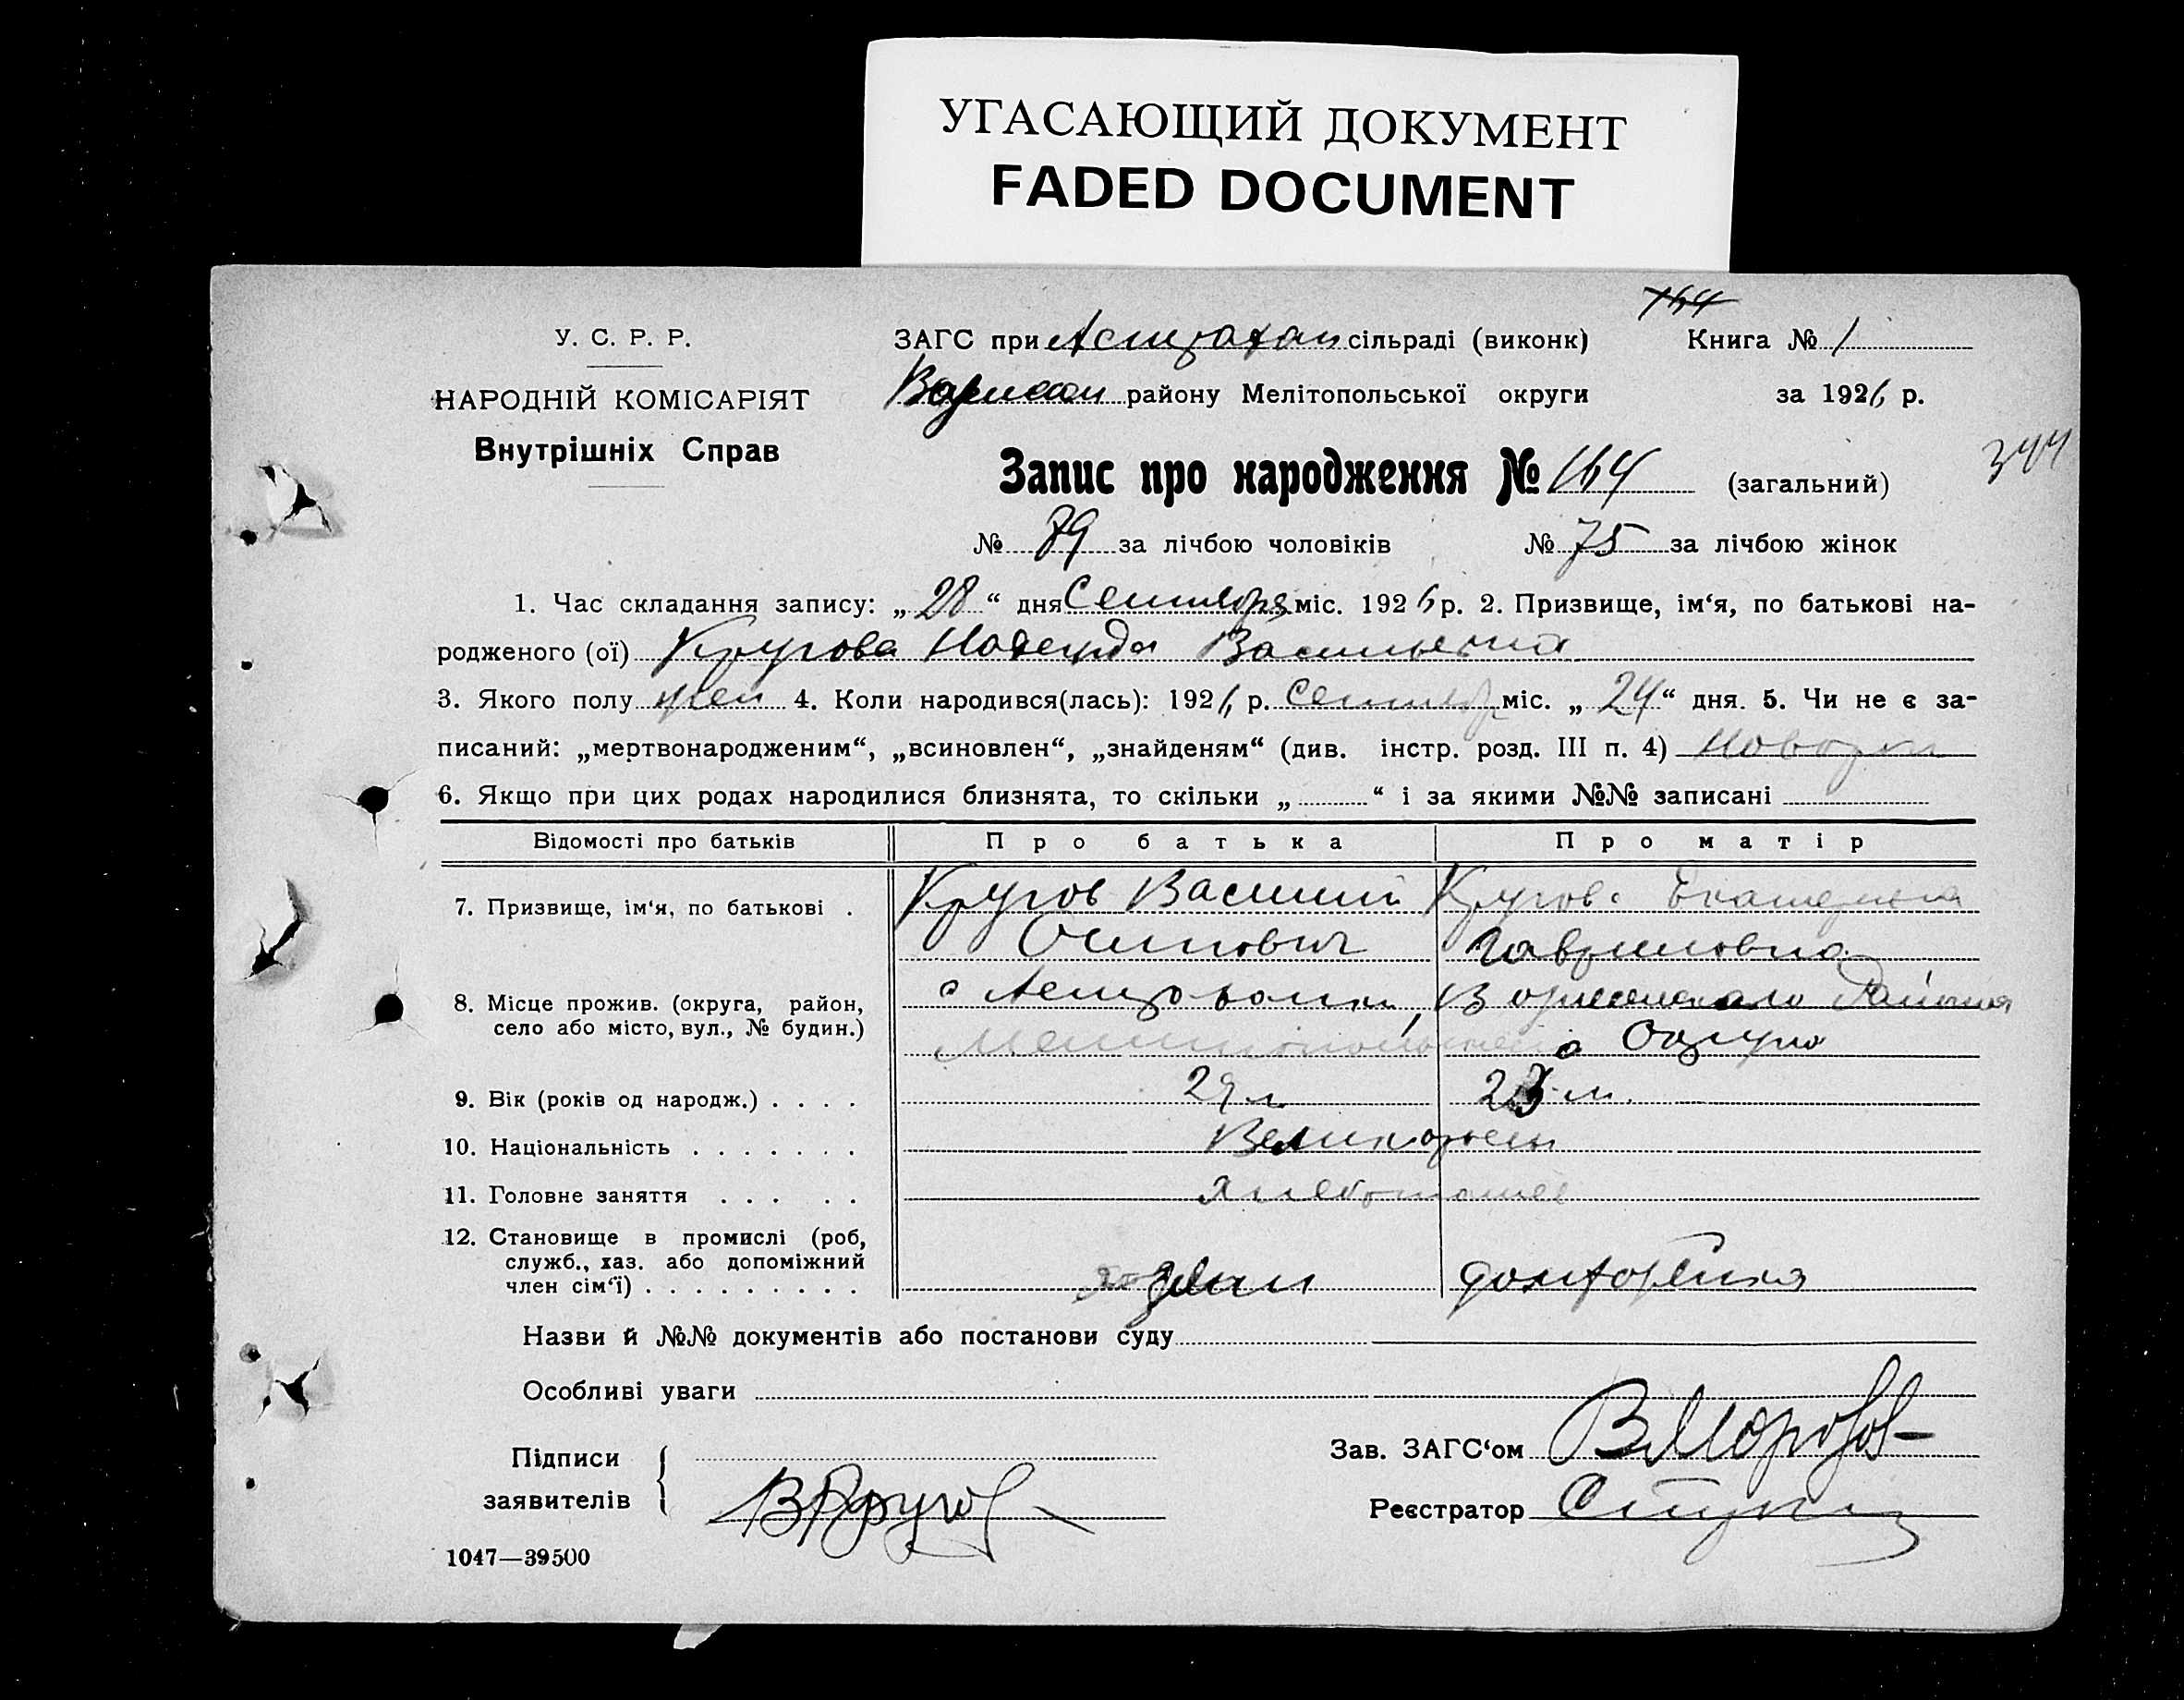 УГАСАЮЩИЙ ДОКУМЕНТ
FADED DOCUMENT
У. С. Р. Р.
НАРОДНІЙ КОМІСАРІЯТ
Внутрішніх Справ
164
ЗАГС при Астрахан сільраді (виконк) Книга № 1
району Мелітопольської округи за 1926 р.
344
Запис про народження № 164 (загальний)
№ 89 за лічбою чоловіків № 75 за лічбою жінок
1. Час складання запису: „28“ дня Сентября міс. 1926 р. 2. Призвище, ім‘я, по батькові на-
родженого (ої) Кругова Надежда Васильевна
3. Якого полу жен 4. Коли народився(лась): 1926 р. Сентябр міс. „24“ дня. 5. Чи не є за-
писаний: „мертвонародженим“, „всиновлен“, „знайденям“ (див. інстр. розд. III п. 4) Новорж
6. Якщо при цих родах народилися близнята, то скільки „ “ і за якими №№ записані
Відомості про батьків Про батька Про матір
7. Призвище, ім‘я, по батькові . Кругов Василий Кругова Екатерина
Осипович Гавриловна
8. Місце прожив. (округа, район, село або місто, вул., № будин.) с Астраханки, района
Мелитопольского Округа
9. Вік (років од народж.) . . . . 29 л 23 л.
10. Національність . . . . . . . Великоросы
11. Головне заняття . . . . . Хлебопашес
12. Становище в промислі (роб,
служб., хаз. або допоміжний
член сім‘ї) . . . . . . . . . домохозяйка
Назви й №№ документів або постанови суду
Особливі уваги
Підписи
заявителів
В Кругов
Зав. ЗАГС‘ом В Морозов
Реєстратор
1047—39500